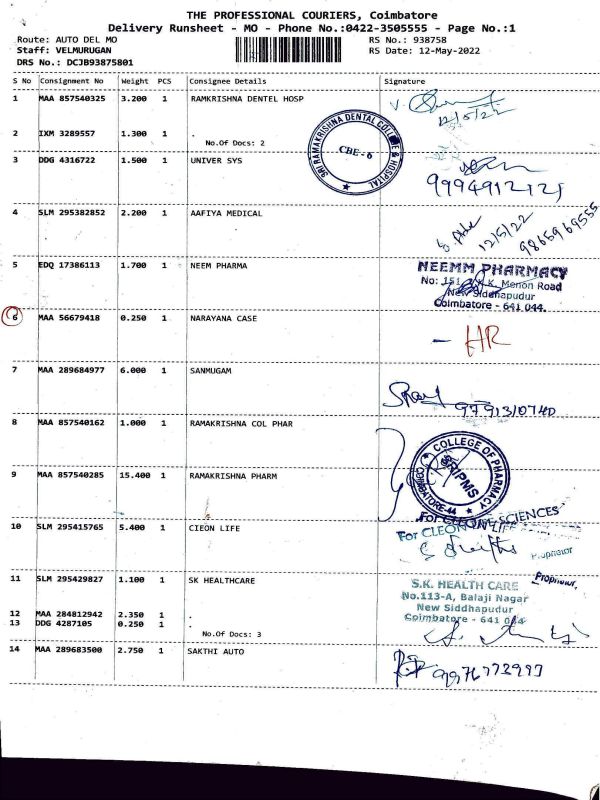 THE PROFESSIONAL COURIERS, Coimbatore
Delivery Runsheet - MO - Phone No.:0422-3505555 - Page No.:1
Route: AUTO DEL MO RS No.: 938758
Staff: VELMURUGAN RS Date: 12-May-2022
DRS No.: DCJB93875801
S No Consignment No Weight PCS Consignee Details Signature
1 MAA 857540325 3.200 1 RAMKRISHNA DENTEL HOSP
12/5/22
2 IXM 3289557 1.300 1
No.Of Docs: 2
SRI RAMAKRISHNA DENTAL COLLEGE & HOSPITAL
CBE - 6
3 DDG 4316722 1.500 1 UNIVER SYS
9994912121
4 SLM 295382852 2.200 1 AAFIYA MEDICAL
12/5/22 9865969555
5 EDQ 17386113 1.700 1 NEEM PHARMA
NEEMM PHARMACY
No: 151, K.K. Menon Road
New Siddhapudur
Coimbatore - 641 044.
6 MAA 56679418 0.250 1 NARAYANA CASE
- HR
7 MAA 289684977 6.000 1 SANMUGAM
9791310740
8 MAA 857540162 1.000 1 RAMAKRISHNA COL PHAR
COLLEGE OF PHARMACY
SRIPMS
COIMBATORE-44
9 MAA 857540285 15.400 1 RAMAKRISHNA PHARM
For CLEON LIFE SCIENCES
10 SLM 295415765 5.400 1 CIEON LIFE
For CLEON LIFE
Proprietor
11 SLM 295429827 1.100 1 SK HEALTHCARE
Proprietor.
S.K. HEALTH CARE
No.113-A, Balaji Nagar
New Siddhapudur
Coimbatore - 641 044
12 MAA 284812942 2.350 1
13 DDG 4287105 0.250 1
No.Of Docs: 3
14 MAA 289683500 2.750 1 SAKTHI AUTO
9976773997